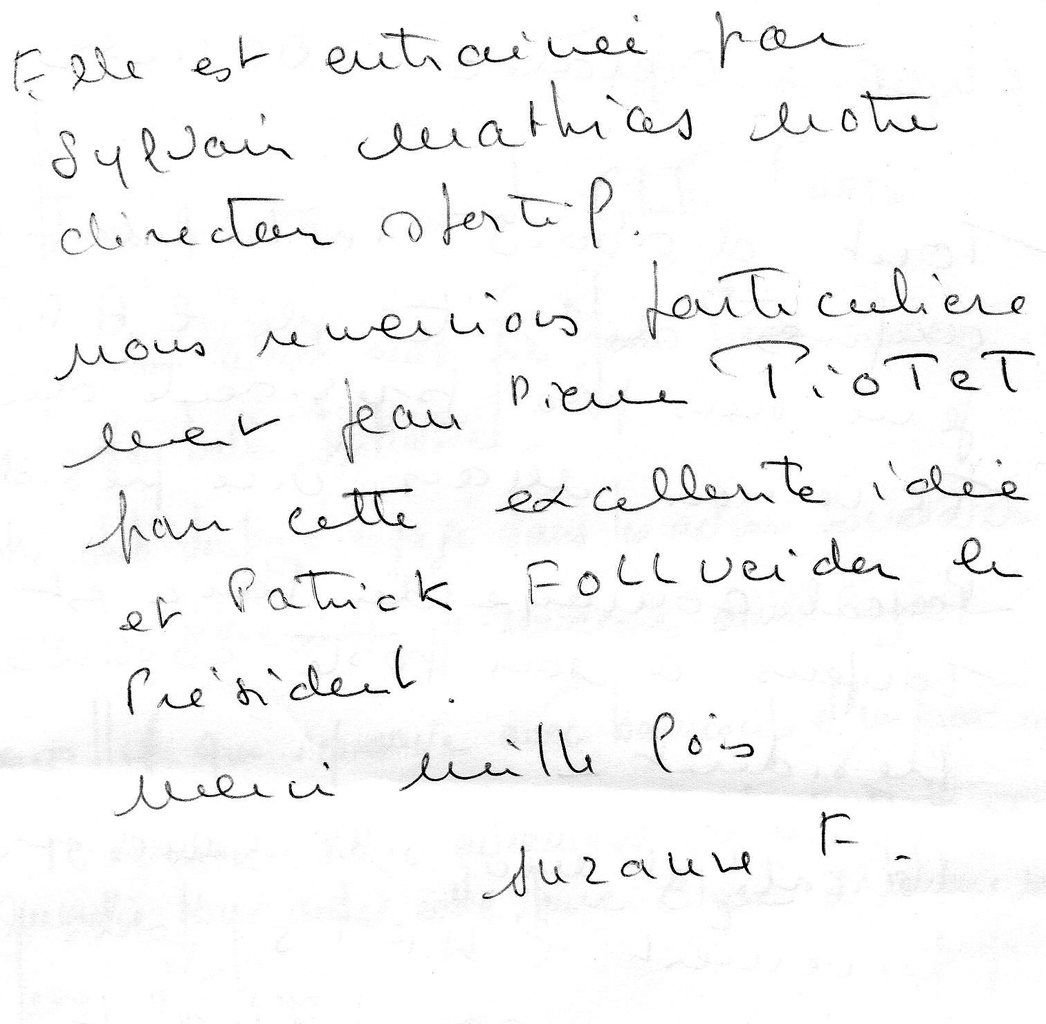 Elle est entrainée par
Sylvain Mathias notre
directeur sportif.
nous remercions particulière
ment Jean Pierre PioTeT
pour cette excellente idée
et Patrick FOLLVeider le
Président.
merci mille fois
Suzanne F.